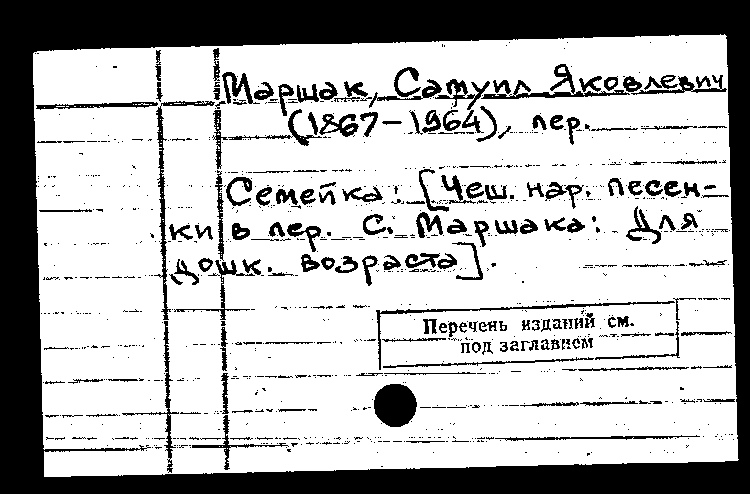 Маршак, Самуил Яковлевич
(1867-1964), пер.
Семейка: [Чеш. нар. песен-
ки в пер. С. Маршака: Для
дошк. возраста].
Перечень изданий см.
под заглавием